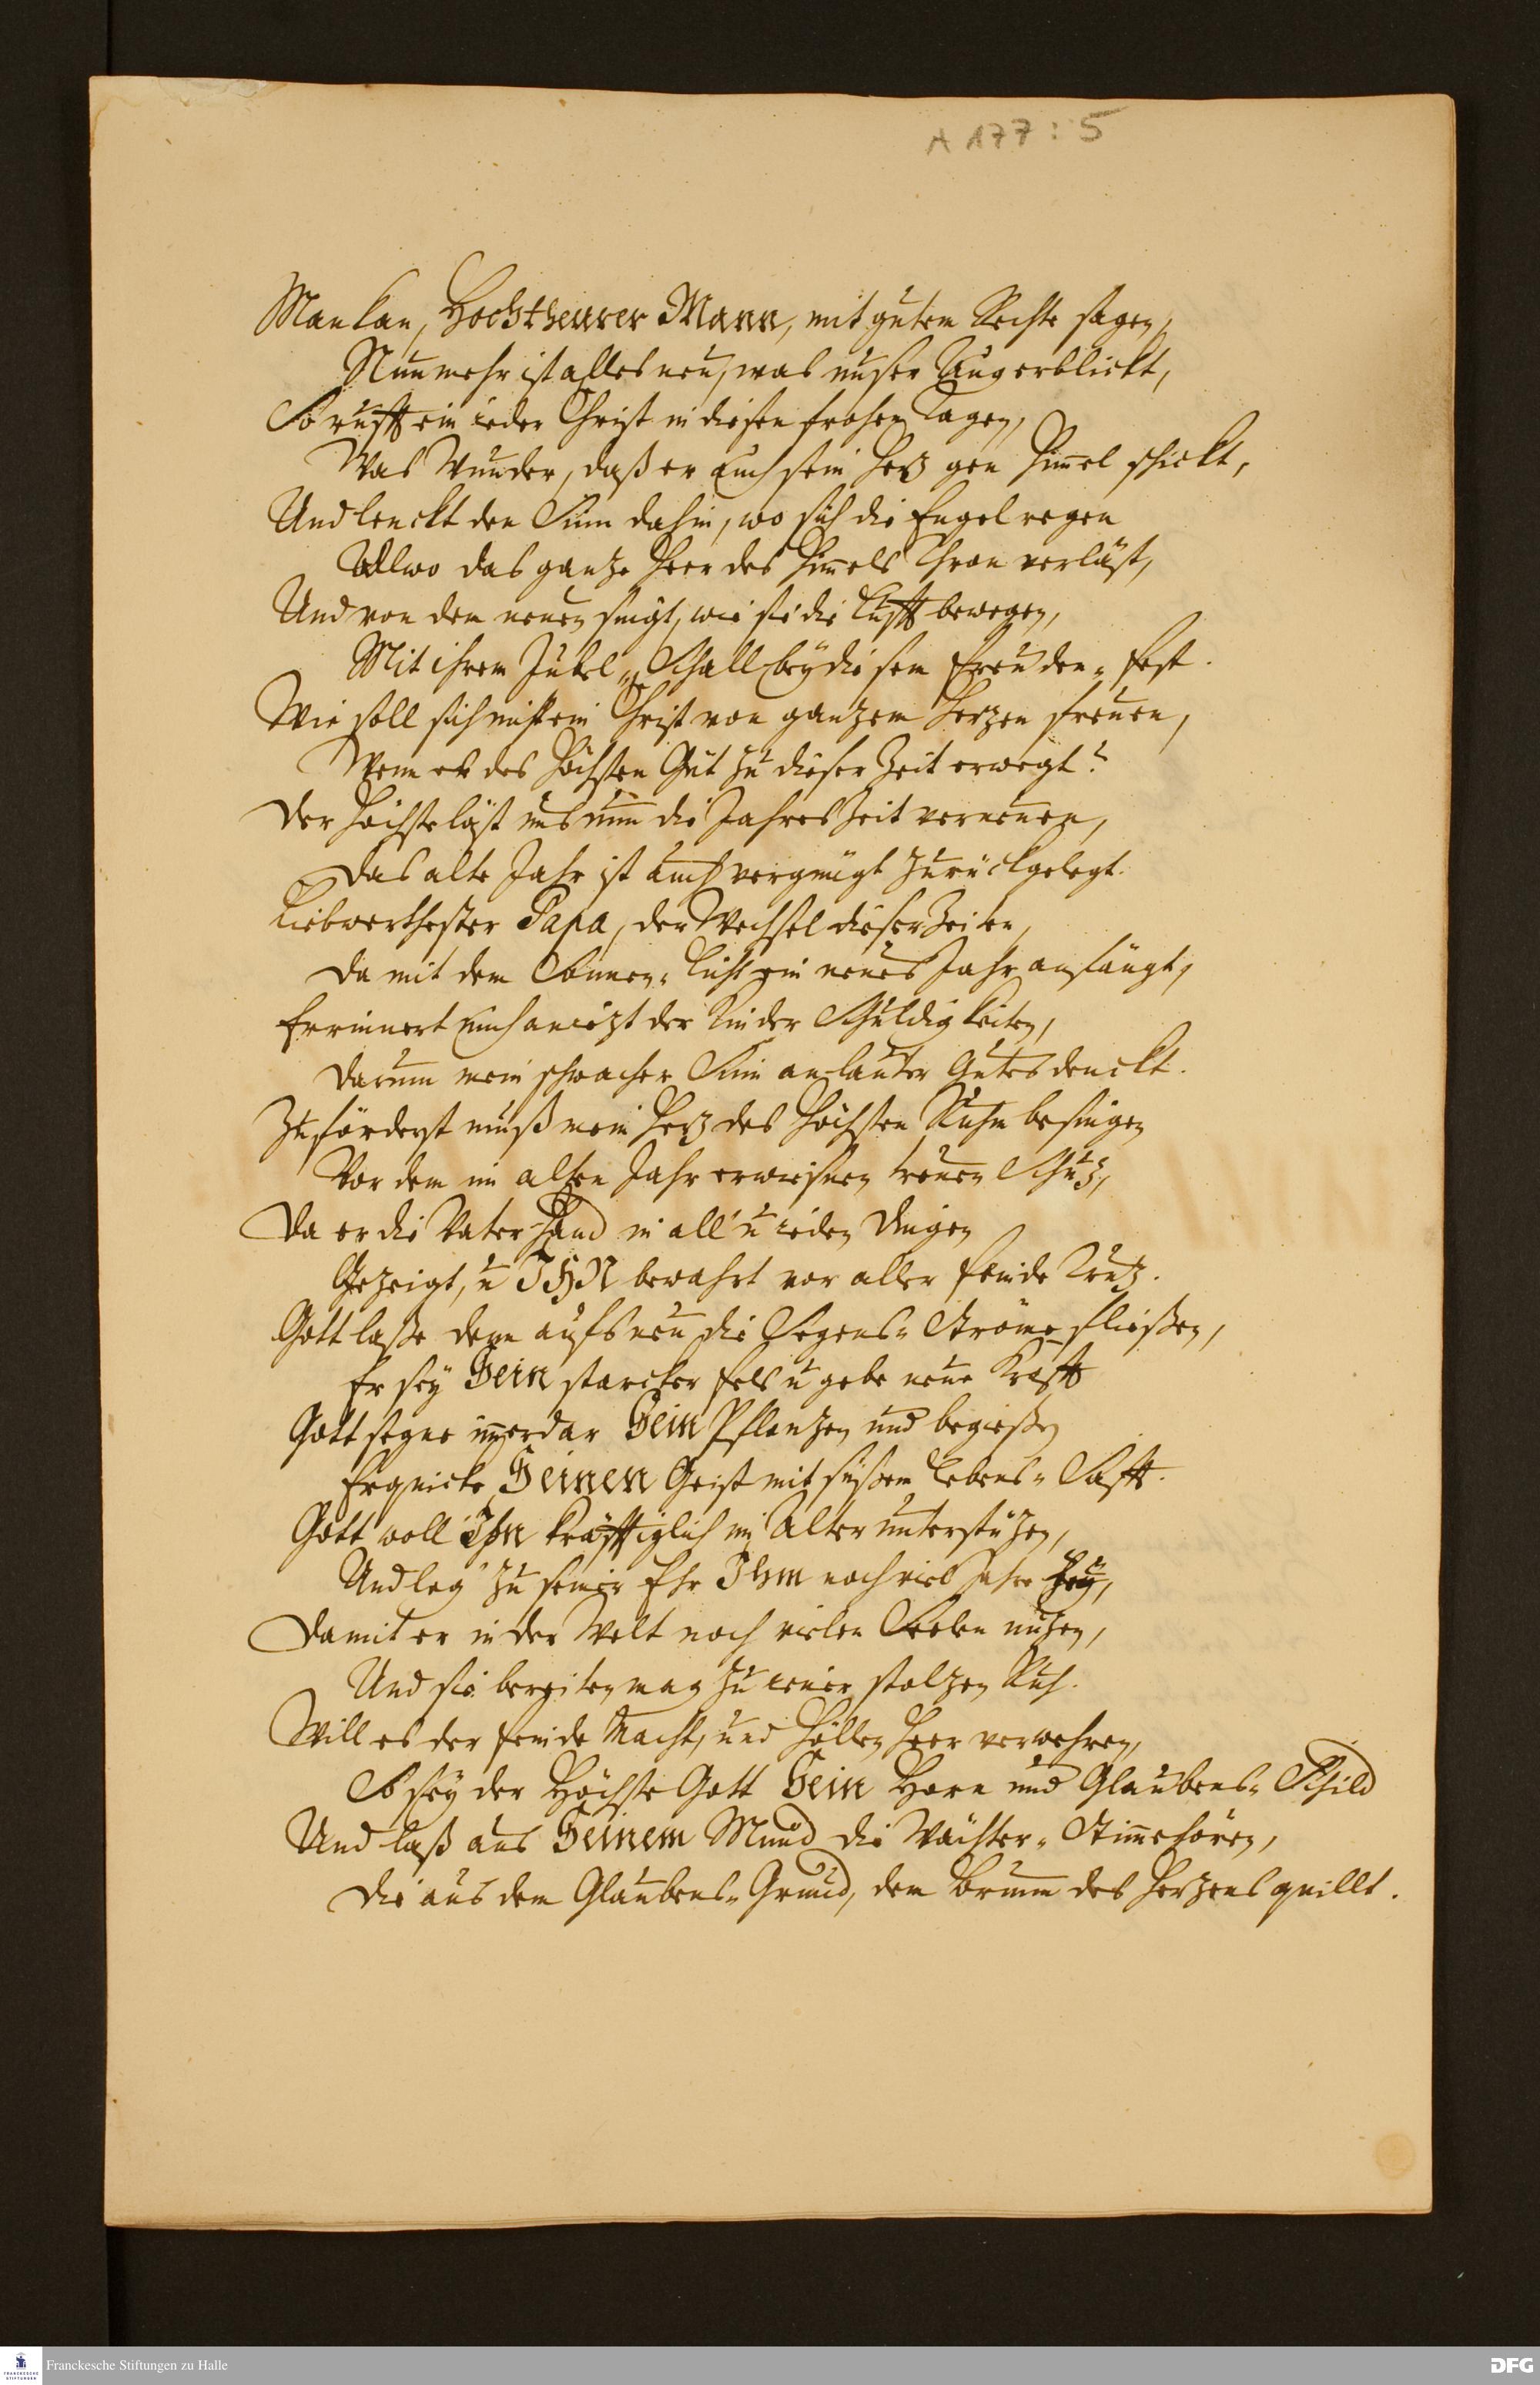 A 177 : 5
Man kan, Hochtheurer Mann, mit gutem Rechte sagen,
Nunmehr ist alles neu, was unser Aug erblickt,
So rufft ein ieder Christ in diesen frohen Tagen,
Was Wunder, daß er auch sein Herz gen Himel schickt,
Und lenckt den Sinn dahin, wo sich die Engel regen
Allwo das gantze Heer des Himels Thron verläst,
Und von dem neuen singt, wie sie die Lufft bewegen,
Mit ihrem Jubel-Schall bey diesem Freuden-Fest.
Wie soll sich nicht ein Christ von gantzem Herzen freuen,
Wenn er des Höchsten Güt zu dieser Zeit erwegt?
Der Höchste läst uns nun die Jahres Zeit verneuen,
Das alte Jahr ist auch vergnügt zurückgelegt.
Liebwerthester Papa, der Wechsel dieser Zeiten,
Da mit dem Sonnen-Licht ein neues Jahr anfängt,
Errinnert mich aniezt der Kinder Schuldigkeiten,
Darum mein schwacher Sinn an lauter Gutes denckt.
Zuförderst muß mein Herz des Höchsten Ruhm besingen
Vor dem im alten Jahr erwiesnen treuen Schuz,
Da er die Vater-Hand in all' u ieden Dingen
Gezeigt, u IHN bewahrt vor aller Feinde Trutz.
Gott lasse denn aufs neu die Segens-Ströme fliessen,
Er sey Sein starcker Fels u gebe neue Krafft
Gott segne immerdar Sein Pflantzen und begiessen
Erquicke Seinen Geist mit süssem Lebens-Safft.
Gott woll' Ihn kräfftiglich im Alter unterstüzen,
Und leg' zu seiner Ehr Ihm noch viel Jahre zu,
Damit er in der Welt noch vielen Seelen nüzen,
Und sie bereiten mag zu iener stolzen Ruh.
Will es der Feinde Macht, und Höllen Heer verwehren,
So sey der Höchste Gott Sein Horn und Glaubens-Schild
Und laß aus Seinem Mund die Wächter-Stime hören,
Die aus dem Glaubens-Grund, dem Brunn des Herzens quillt.
Franckesche Stiftungen zu Halle
FRANCKESCHE STIFTUNGEN
DFG